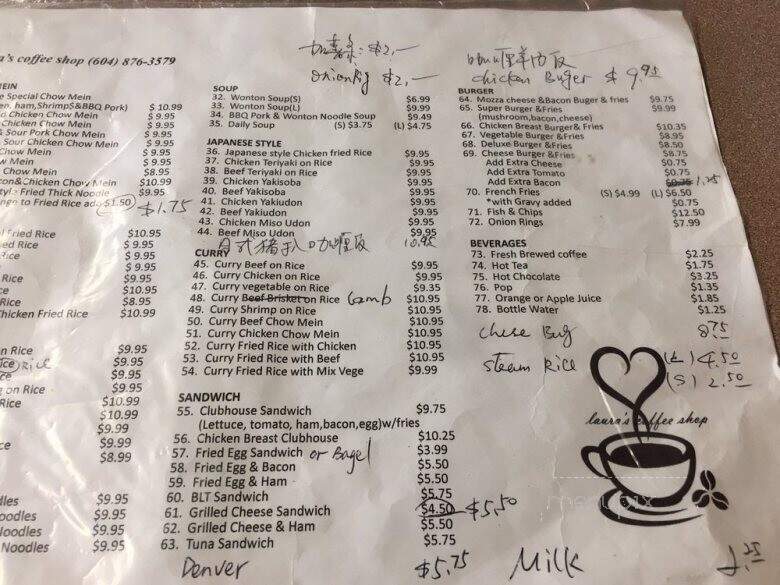 's coffee shop (604) 876-3579
$2,—
$2,—
chicken Burger $9.95
Special Chow Mein
ham,Shrimp$&BBQ Pork) $ 10.99
Chicken Chow Mein $ 9.95
Chow Mein $ 9.95
& Sour Pork Chow Mein $ 9.95
Sour Chicken Chow Mein $ 9.95
Chow Mein $ 9.95
Mein $ 9.95
Chow Mein $ 8.95
&Chicken Chow Mein $10.99
Fried Thick Noodle $9.95
to Fried Rice $1.50 $1.75
Fried Rice $10.95
Rice $ 9.95
$ 9.95
$ 9.95
Rice $ 9.95
$ 9.95
Rice $10.95
Rice $8.95
Chicken Fried Rice $10.99
on Rice $9.95
Rice $9.95
$9.95
on Rice $9.95
Rice $10.99
$10.99
$9.99
$9.99
$8.99
$9.95
Noodles $9.95
$9.95
Noodles $9.95
SOUP
32. Wonton Soup(S) $6.99
33. Wonton Soup(L) $9.99
34. BBQ Pork & Wonton Noodle Soup $9.49
35. Daily Soup (S) $3.75 (L) $4.75
JAPANESE STYLE
36. Japanese style Chicken fried Rice $9.95
37. Chicken Teriyaki on Rice $9.95
38. Beef Teriyaki on Rice $9.95
39. Chicken Yakisoba $9.95
40. Beef Yakisoba $9.95
41. Chicken Yakiudon $9.95
42. Beef Yakiudon $9.95
43. Chicken Miso Udon $9.95
44. Beef Miso Udon $9.95
日式豬扒咖喱飯 10.95
CURRY
45. Curry Beef on Rice $9.95
46. Curry Chicken on Rice $9.95
47. Curry vegetable on Rice $9.35
48. Curry Beef Brisket on Rice Lamb $10.95
49. Curry Shrimp on Rice $10.95
50. Curry Beef Chow Mein $10.95
51. Curry Chicken Chow Mein $10.95
52. Curry Fried Rice with Chicken $10.95
53. Curry Fried Rice with Beef $10.95
54. Curry Fried Rice with Mix Vege $9.99
SANDWICH
55. Clubhouse Sandwich $9.75
(Lettuce, tomato, ham,bacon,egg)w/fries
56. Chicken Breast Clubhouse $10.25
57. Fried Egg Sandwich or Bagel $3.99
58. Fried Egg & Bacon $5.50
59. Fried Egg & Ham $5.50
60. BLT Sandwich $5.75
61. Grilled Cheese Sandwich $4.50 $5.50
62. Grilled Cheese & Ham $5.50
63. Tuna Sandwich $5.75
Denver $5.75
BURGER
64. Mozza cheese &Bacon Buger & fries $9.75
65. Super Burger &Fries $9.99
(mushroom,bacon,cheese)
66. Chicken Breast Burger& Fries $10.35
67. Vegetable Burger &Fries $8.95
68. Deluxe Burger &Fries $8.50
69. Cheese Burger &Fries $8.75
Add Extra Cheese $0.75
Add Extra Tomato $0.75
Add Extra Bacon $0.75 1.25
70. French Fries (S) $4.99 (L) $6.50
*with Gravy added $0.75
71. Fish & Chips $12.50
72. Onion Rings $7.99
BEVERAGES
73. Fresh Brewed coffee $2.25
74. Hot Tea $1.75
75. Hot Chocolate $3.25
76. Pop $1.35
77. Orange or Apple Juice $1.85
78. Bottle Water $1.25
8.75
steam Rice (L) 4.50
(S) 2.50
laura's coffee shop
menupix
Milk